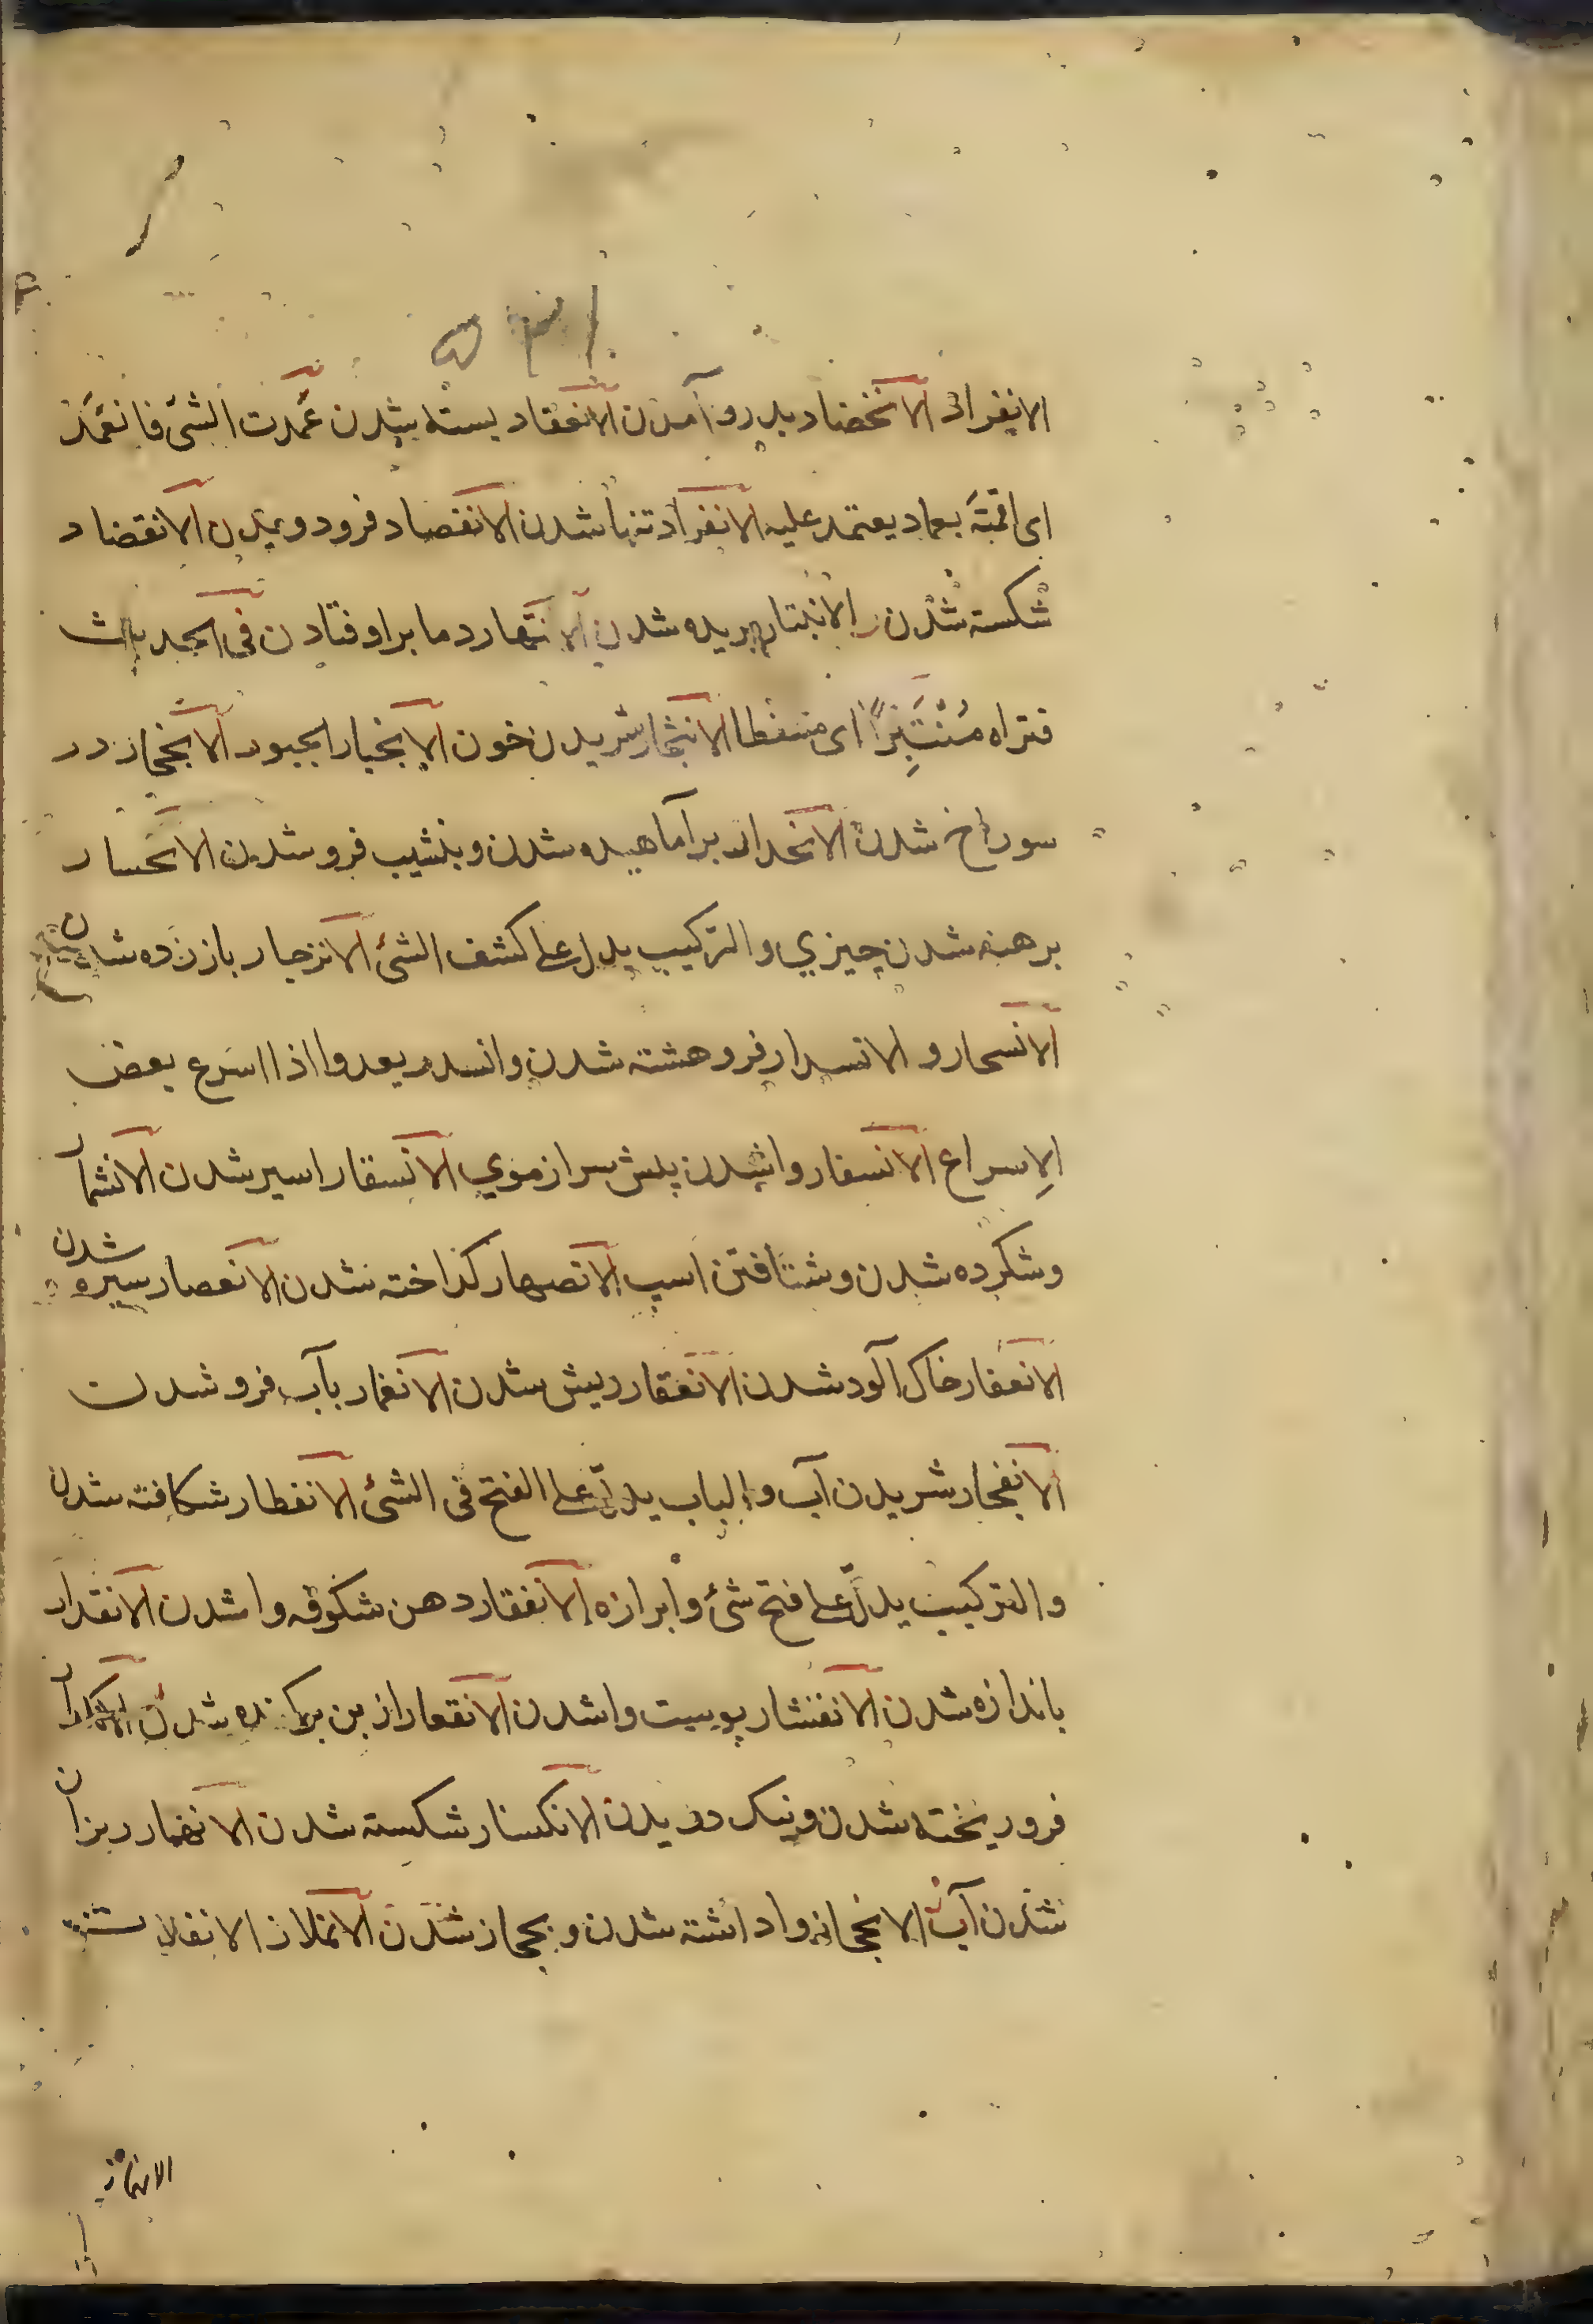 الانفراد الانخضاد بدرد آمدن الانعقاد بسته بشدن عَمدت الشیٔ فانعَمَدَ
ای اقمتَه بعماد یعتمد علیه الانفراد تنها شدن الانفصاد فرود ویدن الانقضاد
شکسته شدن الانبتار بریده شدن الانتهار دما بر اوفتادن فی الحدیث
فتراه مُنْتَثِراً ای منقطا الانثجار شریدن خون الانجبار الجبور الانجحار در
سوراخ شدن الانحدار بر آماهیده شدن و بنشیب فرو شدن الانحسار
برهنه شدن چیزي والترکیب یدل علی کشف الشیٔ الانزجار باز زده شدن
الانسحار و الانسدار فرو هشته شدن وانسدر یعدوا اذا اسرع بعض
الاسراع الانسفار واشدن پیش سر از موي الانسقار اسیر شدن الانشمار
وشکرده شدن و شتافتن اسب الانصهار کداخته شدن الانعصار سیره شدن
الانعفار خاک آلود شدن الانعقار ریش شدن الانغمار بآب فرو شدن
الانفجار شریدن آب والباب یدل علی الفتح فی الشیٔ الانفطار شکافته شدن
والترکیب یدل علی فتح شیٔ وابرازه الانفقار دهن شکوفه واشدن الانقدار
باندازه شدن الانقشار پوست واشدن الانقعار از بن برکنده شدن الانکدار
فرو ریخته شدن و نیک دویدن الانکسار شکسته شدن الانهمار ریزان
شدن آب الانحجاز واداشته شدن و بحجاز شدن الانملاز الانفلات
الانهاز